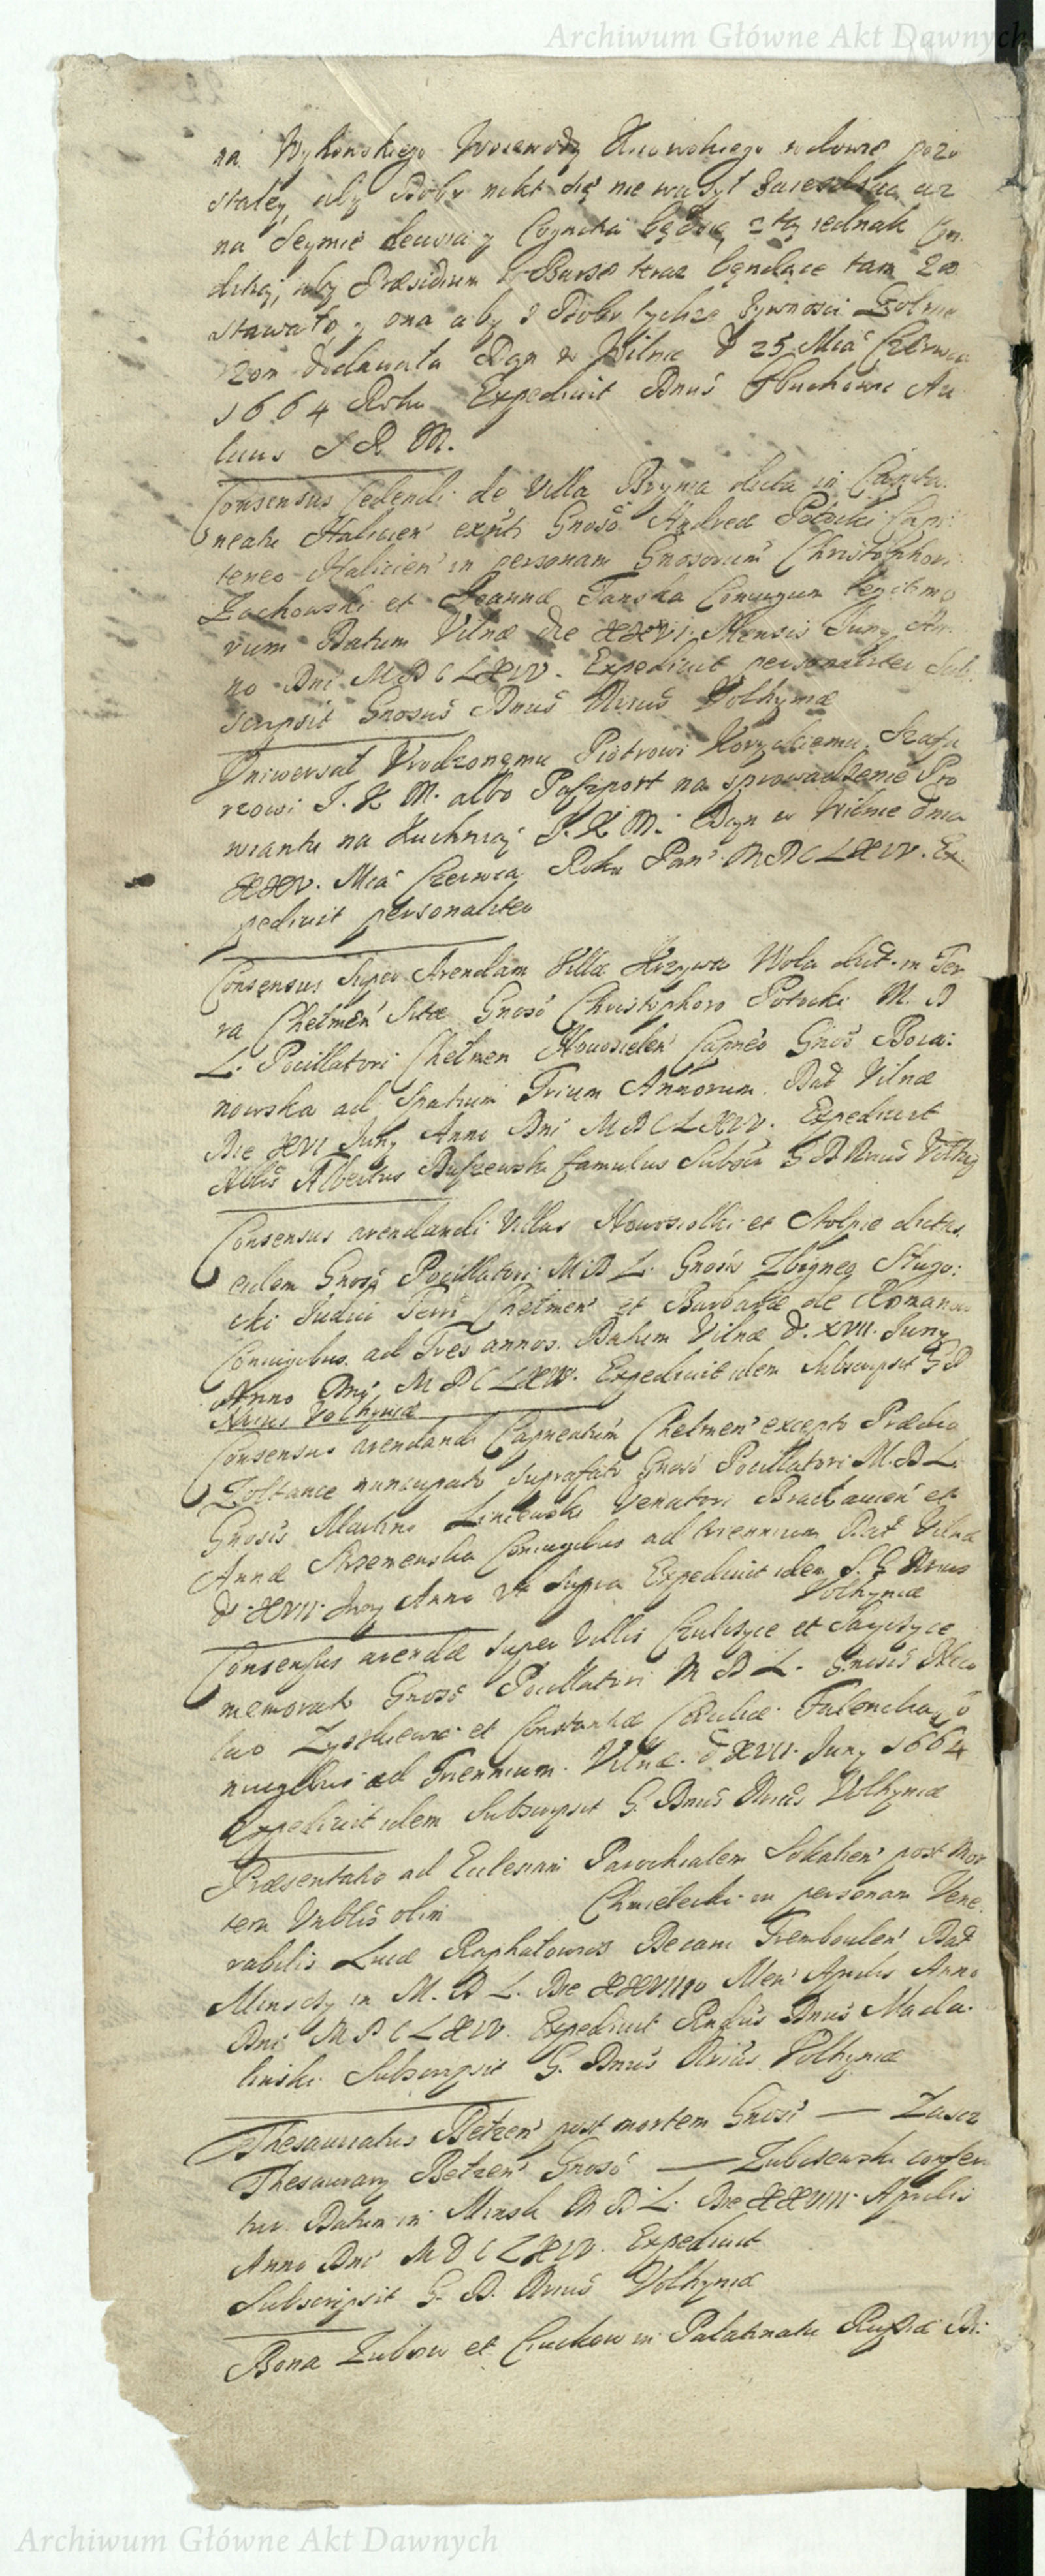 Archiwum Główne Akt Dawnych
na Wyhowskiego Woiewody Kiiowskiego wdowie pozo
staley, aby Dobr nikt się nie ważył aż
na Seymie y będzie, z tą iednak
aby Præsidium w Barze teraz będące tam zo
stawało, y ona aby z Dobr tychże żywnosci Żołnie
rzom dodawała Dan w Wilnie d 25 Mca Czerwca
1664 Roku Expediuit Dnus Au
licus J K M.
Consensus Cedendi de Villa Brynia dicta in Capita
neatu Halicien Gnoso Andreæ Potocki Capi
teneo Halicien in personam Gnosorum Christophori
Zochowski et Joannæ Tanska Coniugum legitimo
rum Datum Vilnæ die XXVI Mensis Juny An
no Dni MDCLXIV. Expediuit personaliter Sub
scripsit Gnosus Dnus Nrius Volhyniæ
Uniwersał Vrodzonemu Piotrowi Korzyckiemu Szafa
rzowi J. K. M. albo Paszport na sprowadzenie Pro
wiantu na Kuchnią J. K. M. Dan w Wilnie dnia
XXIV. Mca Czerwca Roku Pan MDCLXIV. Ex
pediuit personaliter
Consensus super Arendam Villæ Krzywa Wola dict in Ter
ra Chełmen Sitæ Gnoso Christophoro Potocki M. D
L. Pocillatori Chełmen Capneo Gnos Bora:
nowska ad Spatium Trium Annorum. Dat Vilnæ
Die XVI Juny Anno Dni MDCLXIV. Expediuit
Nblis Albertus Buszewski famulus Subscr G D Nrius Volhy
Consensus arendandi Villas Nowosiolki et Stolpie dictas
eidem Gnoso Pocillatori M D L. Gnosis Zbigneo Sługo:
cki Judici Terri Chełmen et Barbaræ de Romanow
Coniugibus ad Tres annos. Datum Vilnæ d. XVII. Juny
Anno Dni MDCLXIV. Expediuit idem Subscripsit G D
Nrius Volhyniæ
Consensus arendandi Capneatum Chełmen excepto Prædio
Zołtance nuncupato suprafato Gnoso Pocillatori M. D L.
Gnosis Martino Liniewski Venatori Bracłauien et
Annæ Krzemenska Coniugibus ad triennium Dat Vilnæ
d. XVII. Juny Anno vt supra Expediuit idem S. G Nrius
Volhyniæ
Consensus arendæ super Villis Czulczyce et Sayczyce
memorato Gnoso Pocillatori M D L. Gnosis
Zyczkiewic et Constantiæ Ceciliæ Falencka, Co
niugibus ad Triennium. Vilnæ. d XVII. Juny 1664
Expediuit idem Subscripsit G. Dnus Nrius Volhyniæ
Præsentatio ad Eclesiam Parochialem Sokalien post mor
tem Vnblis olim Chmielecki in personam Vene
rabilis Lucæ Raphałowicz Decani Trembouleń Dat
Minscy in M. D L. Die XXVIIIo Men Aprilis Anno
Dni MDCLXIV. Expediuit Rndus Dnus Mada:
linski Subscripsit G. Dnus Nrius Volhyniæ
Thesauriatus Bełzen post mortem Gnosi — Zasz
Thesaurary Bełzen Gnoso — Zubczewski confer
tur Datum in Minsk M D L. Die XXVIII. Aprilis
Anno Dni MDCLXIV. Expediuit
Subscripsit G. D. Nrius Volhyniæ
Bona Zubow et in Palatinatu Russiæ
Archiwum Główne Akt Dawnych